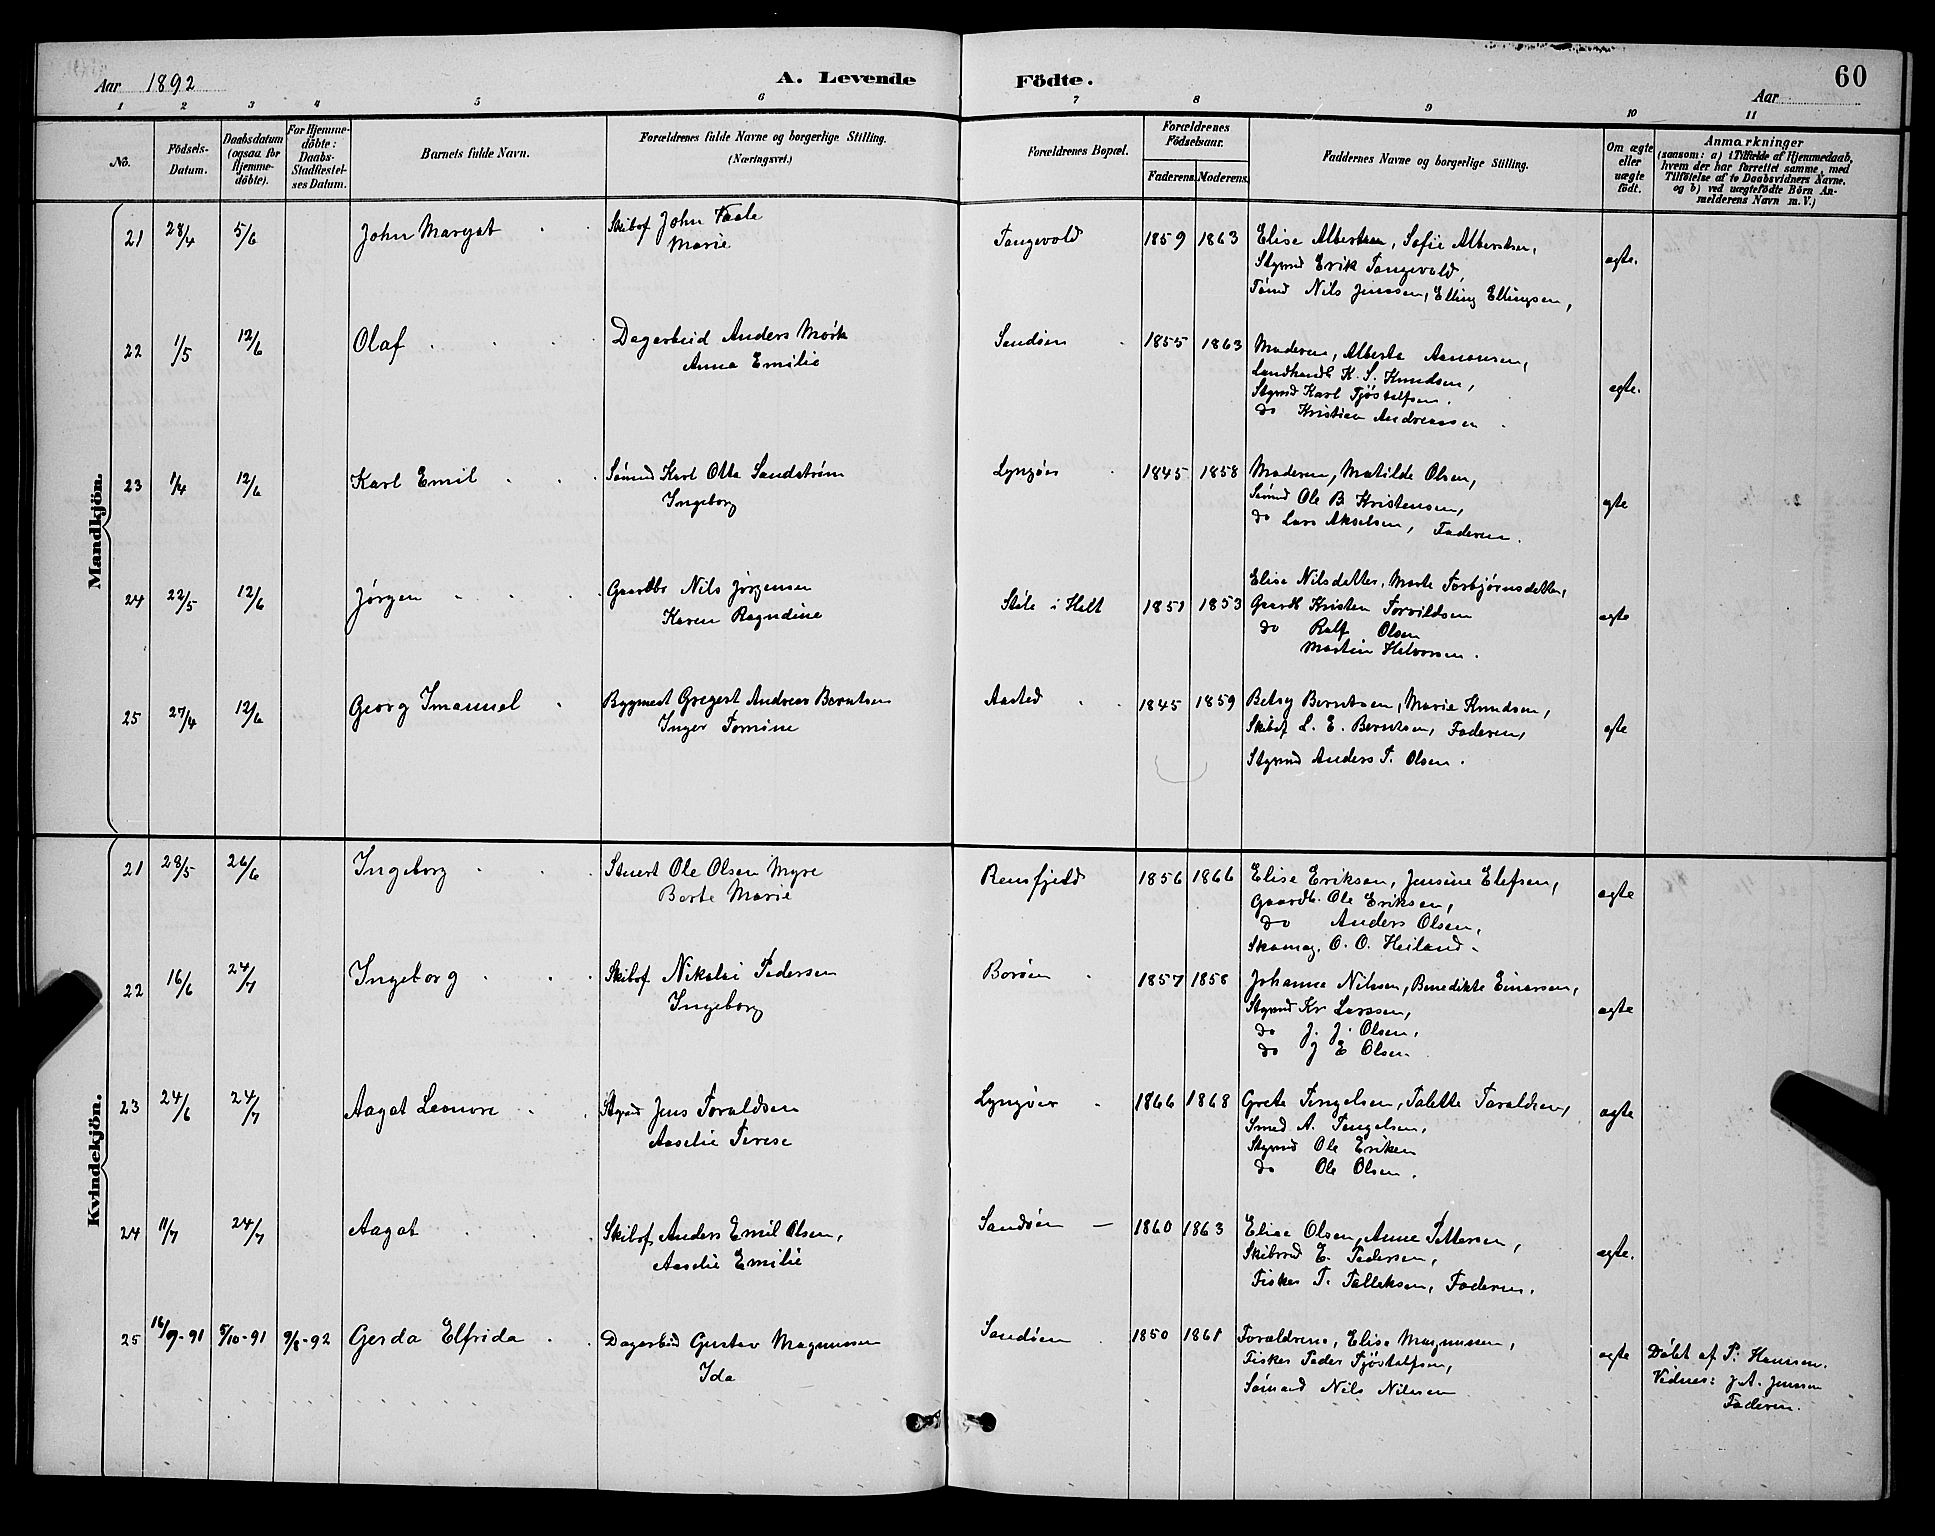 Aar 1892
A. Levende Födte.
60
Aar
1 2 3 4 5 6 7 8 9 10 11
No.
Födsels-Datum.
Daabsdatum (ogsaa for Hjemmedöbte).
For Hjemmedöbte: Daabs-Stadfæstelses Datum.
Barnets fulde Navn.
Forældrenes fulde Navne og borgerlige Stilling. (Næringsvei.)
Forældrenes Bopæl.
Forældrenes Födselsaar.
Faderens. Moderens.
Faddernes Navne og borgerlige Stilling.
Om ægte eller uægte födt.
Anmærkninger
(saasom: a) i Tilfælde af Hjemmedaab, hvem der har forrettet samme, med Tilföielse af to Daabsvidners Navne, og b) ved uægtefödte Börn Anmelderens Navn m. V.)
Mandkjön.
21 28/4 5/6 John Margat Skibsf John Vaale Tangevold 1859 1863 Elise Albertsen, Sofie Albertsen, ægte.
Marie
Stymd Erik Tangevold,
Tømd Nils Jenssen, Elling Ellingsen,
22 1/5 12/6 Olaf Dagarbeid Anders Mørk Sandøen 1855 1863 Moderen, Alberte Aanonsen, ægte.
Anna Emilie
Landhandl K. S. Knudsen,
Stymd Karl Tjøstelfsen.
do Kristian Andreassen
23 1/4 12/6 Karl Emil Sømnd Karl Otto Sandstrøm Lyngøer 1845 1858 Moderen, Matilde Olsen, ægte
Ingeborg
Sømd Ole B Kristensen,
do Lars Akselsen, Faderen.
24 22/5 12/6 Jørgen Gaardbr Nils Jørgensen Støle i Holt 1851 1853 Elise Nilsdatter, Marte Torbjørnsdatter, ægte
Karen Ragndine
Gaardb Kristen Torvildsen
do Rolf Olsen
Martin Halvorsen.
25 27/4 12/6 Georg Imanuel Bygmest Gregert Andreas Berntsen Aasted 1845 1859 Betsy Berntsen, Marie Knudsen, ægte
Inger Tomine
Skibsf L. E. Berntsen, Faderen,
Stymd Anders T. Olsen.
Kvindekjön.
21 28/5 26/6 Ingeborg Stuert Ole Olsen Myre Rensfjeld 1856 1866 Elise Eriksen, Jensine Elefsen, ægte
Berte Marie
Gaardb. Ole Eriksen,
do Anders Olsen,
Skomag. O. O. Heiland.
22 16/6 24/7 Ingeborg Skibsf Nikolai Pedersen Borøen 1857 1858 Johanna Nilssen, Benedikte Einersen, ægte
Ingeborg
Stymd Kr Larssen,
do J. J. Olsen,
do J E Olsen
23 24/6 24/7 Aagot Leonore Stymd Jens Toraldsen Lyngøer 1866 1868 Grete Tengelsen, Talette Taraldsen, ægte
Aaselie Terese
Smed A. Tengelsen,
Stymd Ole Eriksen
do Ole Olsen.
24 11/7 24/7 Aagot Skibsf Anders Emil Olsen, Sandøen 1860 1863 Elise Olsen, Anne Pettersen, ægte.
Aaselie Emilie
Skibsrd E. Pedersen,
Fisker T. Talleksen, Faderen.
25 16/9-91 5/10-91 9/8-92 Gerda Elfrida Dagarbeid Gustav Magnussen Sandøen 1850 1861 Forældrene, Elise Magnussen, ægte Døbt af P. Hanssen.
Ida
Fisker Peder Tjøstelfsen,
Sømand Nils Nilssen
Vidner: J. A. Jenssen
Faderen.